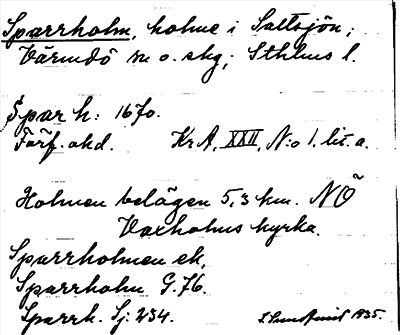 Sparrholm, holme i Saltsjön;
Värmdö sn o. skg; Sthlms l.
Sparh: 1670.
Förf. okd. Kr A, XXII, N:o 1. lit. a.
Holmen belägen 5,3 km. NÖ
Vaxholms kyrka.
Sparrholmen ek,
Sparrholm G. 76.
Sparrh. Sj: 234. 1935.